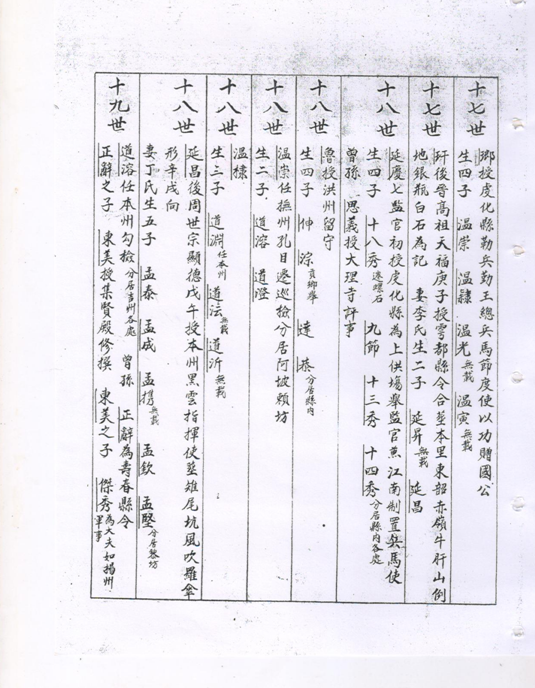 十七世 鄉授虔化縣勤兵勤王總兵馬節度使以功贈國公
生四子 温崇 温禄 温光無載 温寅無載
十七世 玕後晉高祖天福庚子授雩都縣令合塟本里東韶赤嶺牛肝山倒
地銀瓶白石為記 妻李氏生二子 延昇無載 延昌
十八世 延慶七監官初授虔化縣為上供場擧監官兼江南制置兵馬使
生四子 十八秀遷璜石 九節 十三秀 十四秀分居縣內各處
曾孫 思義授大理寺評事
十八世 魯授洪州留守
生四子 伸 淙貢鄉擧 達 恭分居縣內
十八世 温崇任撫州孔目遷巡檢分居阿坡賴坊
生二子 道溶 道澄
十八世 温禄
生三子 道淵任本州 道法無載 道沂無載
十八世 延昌後周世宗顯德戊午授本州黑雲指揮使塟雉尾坑風吹羅傘
形辛戌向
妻丁氏生五子 孟泰 孟成 孟攜無載 孟欽 孟堅分居黎坊
十九世 道溶任本州勾檢分居吉州各處 曾孫 正辭為壽春縣令
正辭之子 東美授集賢殿修撰 東美之子 傑秀為大夫知揚州軍事